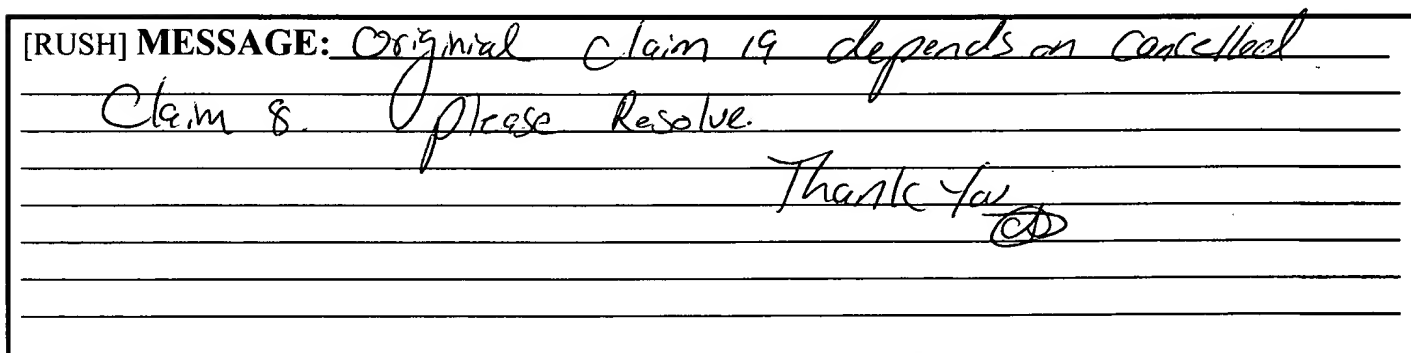 [RUSH] MESSAGE: Originial claim 19 depends on cancelled
Claim 8. please Resolve.
Thank You